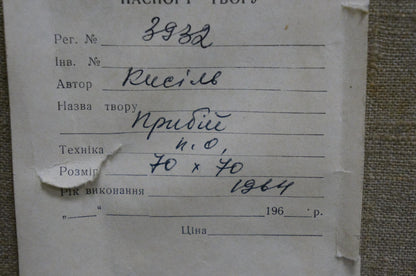 ПАСПОРТ ТВОРУ
Рег. № 3932
Інв. №
Автор Кисіль
Назва твору
Прибій
Техніка п. о,
Розмір 70 × 70
Рік виконання 1964
„ “ 196 р.
Ціна